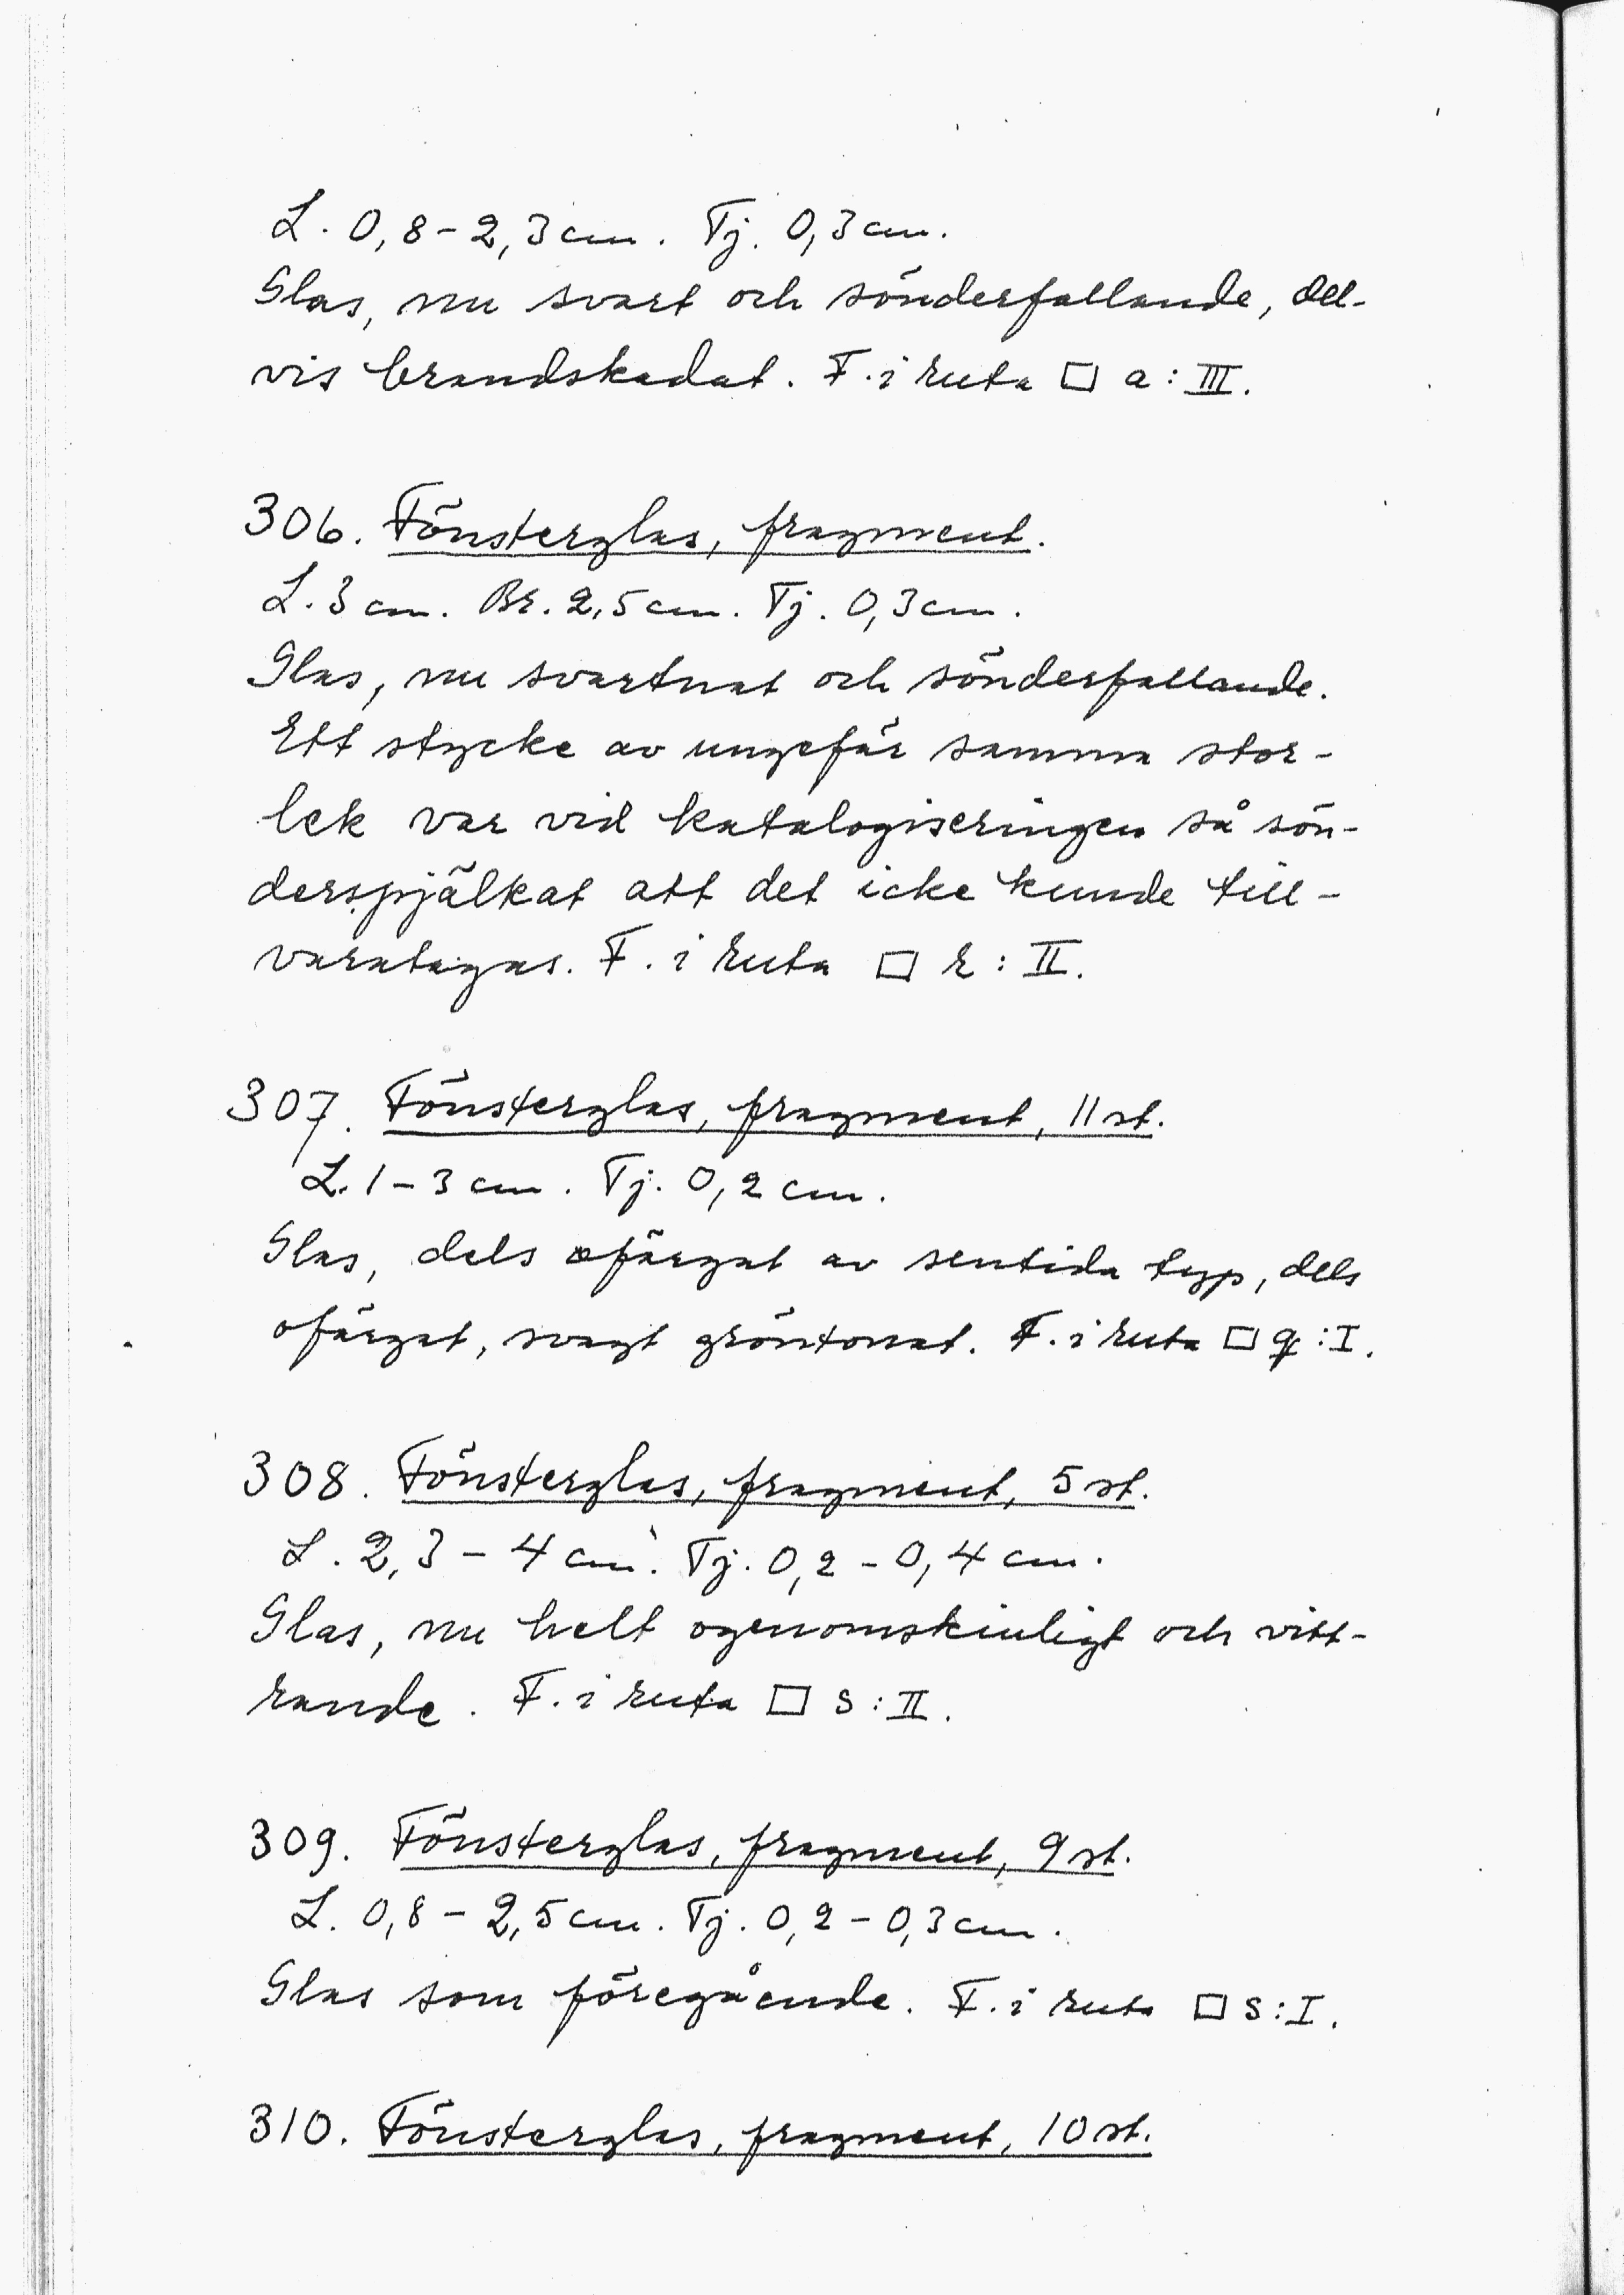 L. 0,8 - 2,3 cm. Tj. 0,3 cm.
Glas, nu svart och sönderfallande, del-
vis brandskadat. F. i ruta □ a : III.
306. Fönsterglas, fragment.
L. 3 cm. Br. 2,5 cm. Tj. 0,3 cm.
Glas, nu svartnat och sönderfallande.
Ett stycke av ungefär samma stor-
lek var vid katalogiseringen så sön-
derspjälkat att det icke kunde till-
varatagas. F. i ruta □ r : II.
307. Fönsterglas, fragment, 11 st.
L. 1 - 3 cm. Tj. 0,2 cm.
Glas, dels ofärgat av sentida typ, dels
ofärgat, svagt gröntonat. F. i ruta □ q : I.
308. Fönsterglas, fragment, 5 st.
L. 2,3 - 4 cm. Tj. 0,2 - 0,4 cm.
Glas, nu helt ogenomskinligt och vitt-
rande. F. i ruta □ s : II.
309. Fönsterglas, fragment, 9 st.
L. 0,8 - 2,5 cm. Tj. 0,2 - 0,3 cm.
Glas som föregående. F. i ruta □ s : I.
310. Fönsterglas, fragment, 10 st.